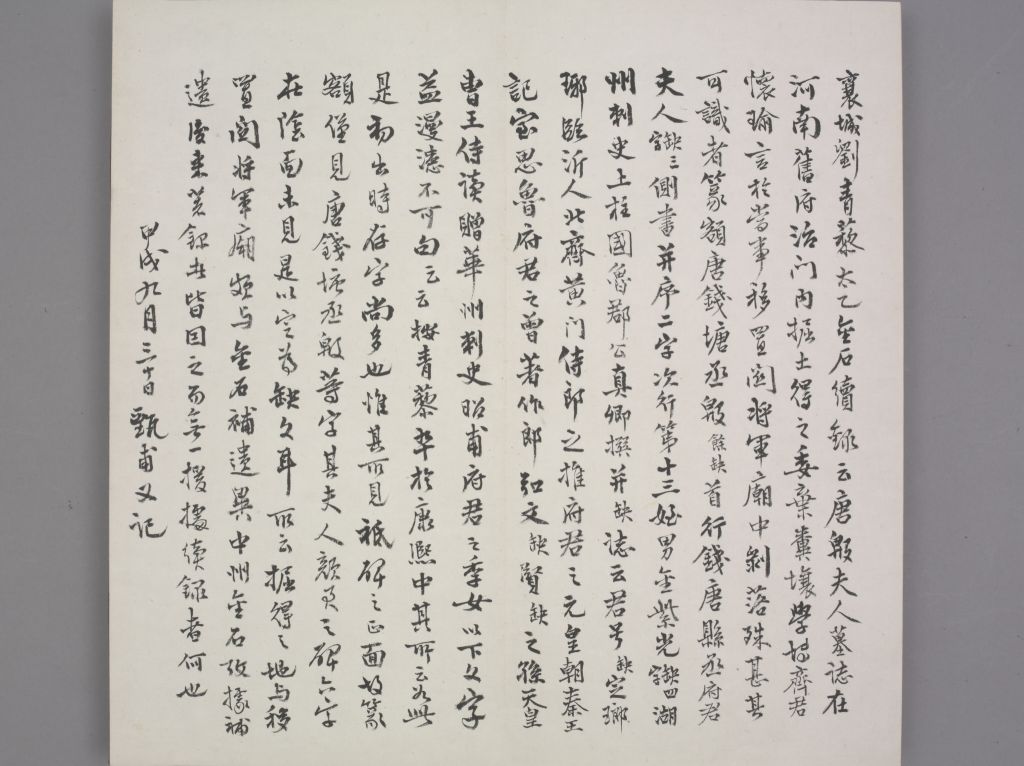 襄城劉青藜太乙金石續錄云唐殷夫人墓誌在
河南舊府治门內掘土得之委棄糞壤學博齊君
懷瑜言於當事移置関将軍廟中剝落殊甚其
可識者篆額唐錢塘丞殷餘缺首行錢唐縣丞府君
夫人缺三字側書并序二字次行第十三姪男金紫光缺四字湖
州刺史上柱國魯郡公真卿撰并缺誌云君号缺定瑯
琊臨沂人北齊黄门侍郎之推府君之元皇朝秦王
記室思魯府君之曾著作郎弘文缺賢缺之孫天皇
曹王侍读贈華州刺史昭甫府君之季女以下文字
益漫漶不可句云云按青藜卒於康熙中其所云如此
是初出時存字尚多也惟其所見祇碑之正面故篆
額僅見唐錢塘丞殷等字其夫人颜君之碑六字
在陰面未見是以定为缺文耳所云掘得之地与移
置関将軍廟頗与金石補遺異中州金石攷據補
遺後来著録家皆因之而无一援據续録者何也
甲戌九月三十日甄甫又记